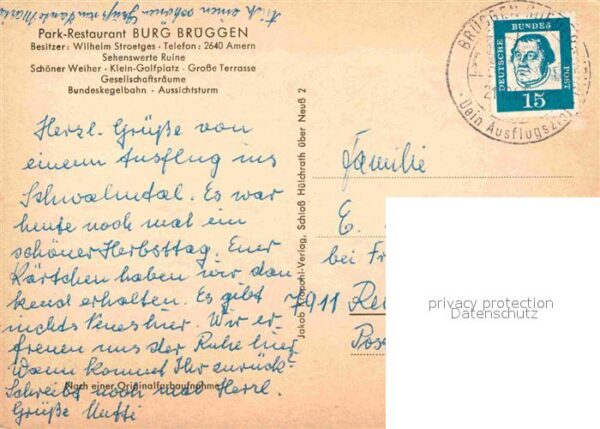 Auch einen schönen Gruß von Tante Maria
Park-Restaurant BURG BRÜGGEN
Besitzer: Wilhelm Stroetges · Telefon: 2640 Amern
Sehenswerte Ruine
Schöner Weiher · Klein-Golfplatz · Große Terrasse
Gesellschaftsräume
Bundeskegelbahn · Aussichtsturm
Herzl. Grüße von
einem Ausflug ins
Schwalmtal. Es war
heute noch mal ein
schöner Herbsttag. Euer
Kärtchen haben wir dan
kend erhalten. Es gibt
nichts Neues hier. Wir er-
freuen uns der Ruhe hier.
Wann kommt Ihr zurück?
Schreibt noch mal. Herzl.
Grüße Mutti
Nach einer Originalfarbaufnahme
Jakob Krapohl-Verlag, Schloß Hülchrath über Neuß 2
BRÜGGEN
Dein Ausflugsziel
DEUTSCHE BUNDES POST
15
Familie
E.
bei Fr
7911 Re
Pos
privacy protection
Datenschutz